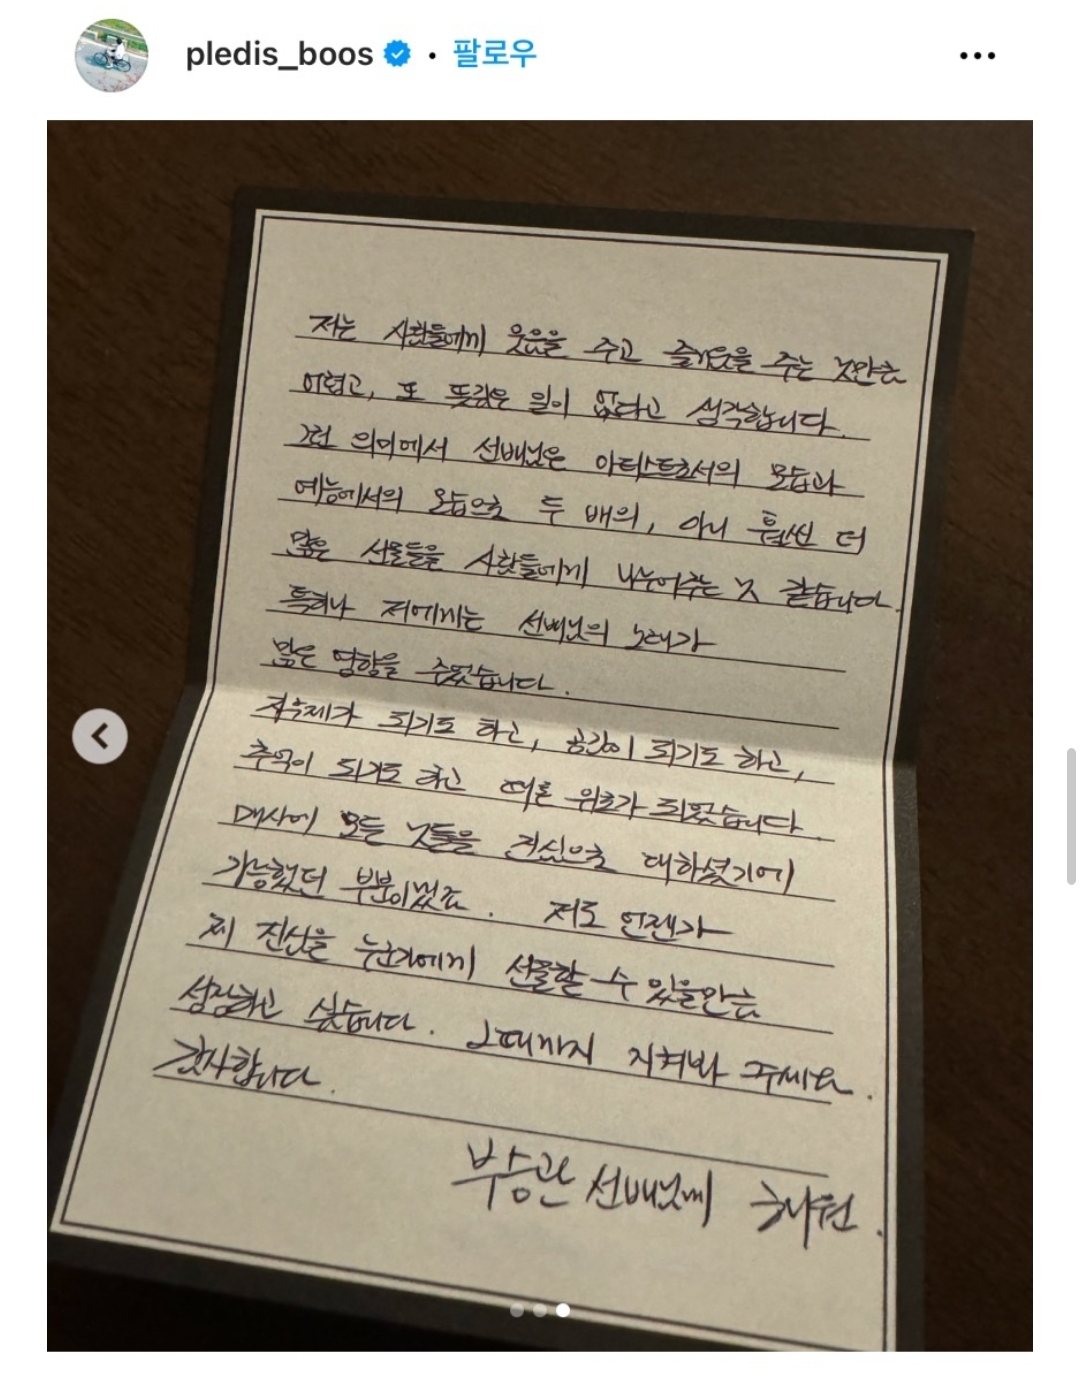 pledis_boos · 팔로우
저는 사람들에게 웃음을 주고 즐거움을 주는 것만큼
어렵고, 또 뜻깊은 일이 없다고 생각합니다.
그런 의미에서 선배님은 아티스트로서의 모습과
예능에서의 모습으로 두 배의, 아니 훨씬 더
많은 선물들을 사람들에게 나누어주는 것 같습니다.
특히나 저에게는 선배님의 노래가
많은 영향을 주었습니다.
자극제가 되기도 하고, 공감이 되기도 하고,
추억이 되기도 하고 때론 위로가 되었습니다.
매사에 모든 것들을 진심으로 대하셨기에
가능했던 부분이겠죠. 저도 언젠가
제 진심을 누군가에게 선물할 수 있을만큼
성장하고 싶습니다. 그때까지 지켜봐 주세요.
감사합니다.
부승관 선배님께